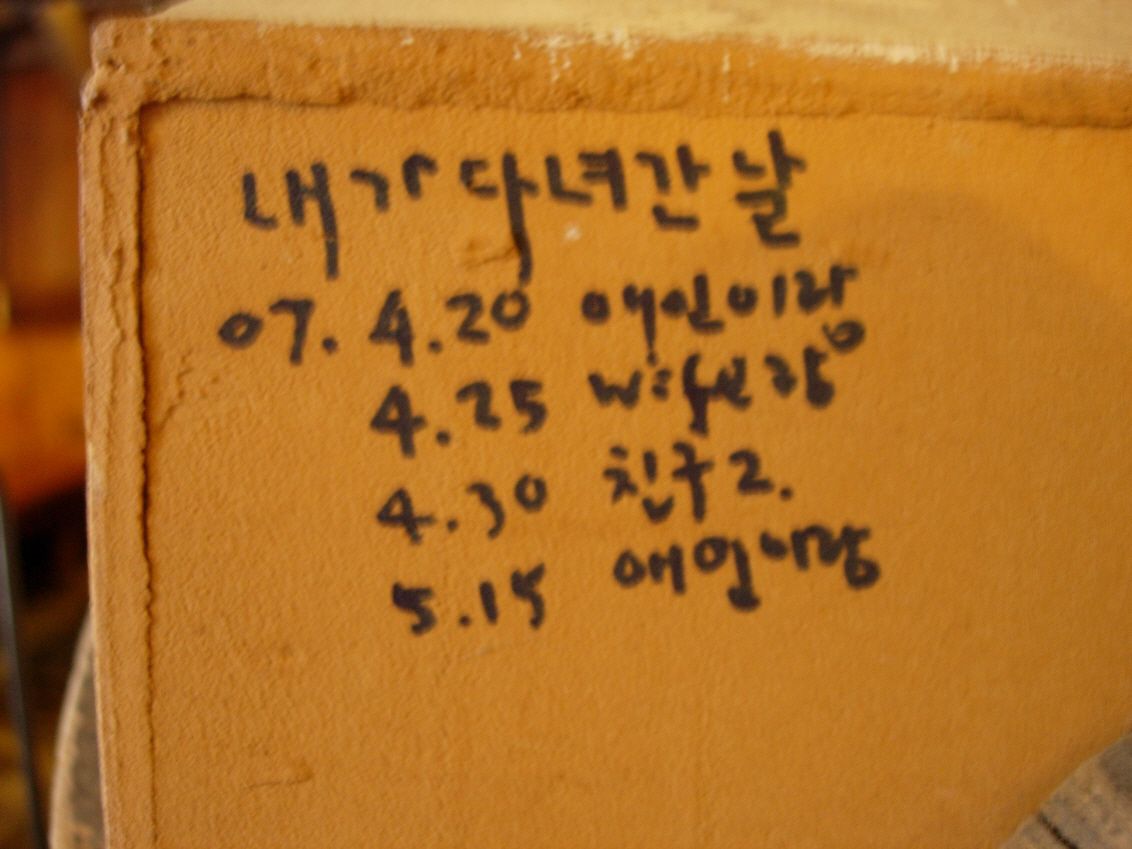 내가 다녀간 날
07. 4.20 애인이랑
4.25
4.30 친구 2.
5.15 애인이랑